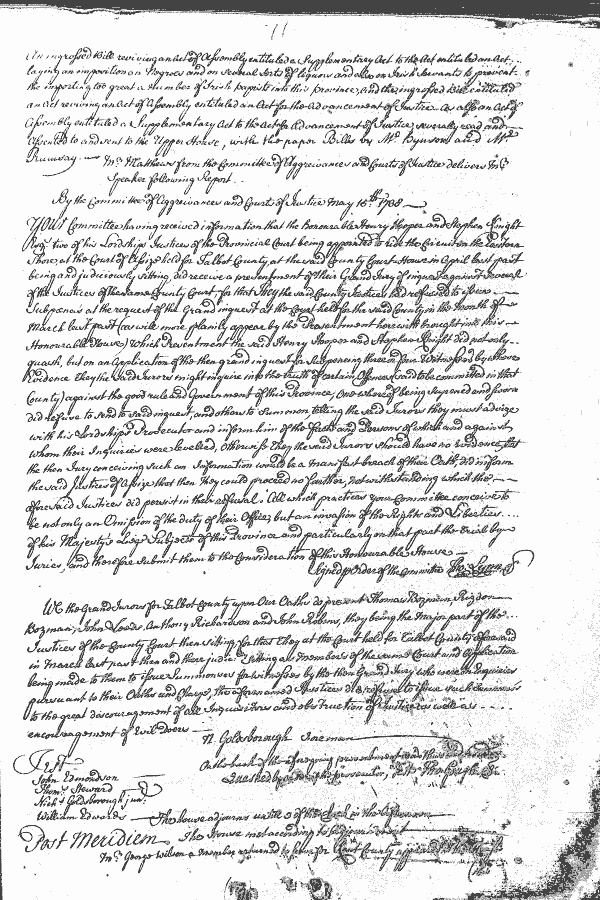 11
An ingrossed Bill reviving an Act of Assembly entituled a Supplementary Act to the Act entituled an Act
laying an imposition on Negroes and on several sorts of liquors and also on Irish Servants to prevent
the importing too great a number of Irish papists into this province, and the ingrossed Bill entituled
an act reviving an Act of Assembly entituled an Act for the Advancement of Justice. As also an Act of
Assembly entituled a Supplementary Act to the Act for Advancement of Justice, severally read and
assented to and sent to the Upper House, with the paper Bills by Mr. Bynson and Mr.
Rumsay.
Mr. Matthews from the Committee of Aggreivances and Courts of Justice delivers Mr.
Speaker following Report.
By the Committee of Aggreivances and Court of Justice May 15th 1738.
Your Committee having received information that the Honourable Henry Hooper and Stephen Knight
Esqrs. two of his Lordships Justices of the Provincial Court being appointed to ride the Circuit on the Eastern
Shore, at the Court of Assize held for Talbot County, at the said County Court House in April last past
being and judiciously sitting, did receive a presentment of their Grand Jury of inquest against several
of the Justices of the same County Court, for that they the said County Justices had refused to issue
Subpœnas at the request of the Grand inquest at the Court held for the said County in the month of
March last past (as will more plainly appear by the Presentment herewith brought into this
Honourable House) which Presentment the said Henry Hooper and Stephen Knight did not only
quash, but on an Application of the then grand inquest for Subpœneing therein due Witnesses by whose
Evidence they the said Jurors might inquire into the truth of certain Offences said to be committed in that
County) against the good rule and Government of this Province, one whereof being Supœned and sworn
did refuse to send to said inquest, and others to Summon telling the said Jurors they must advise
with his Lordships Prosecutor and inform him of the Facts and Persons of which and against
whom their Inquiries were levelled, otherwise they the said Jurors should have no evidence, but
the then Jury conceiving such an Information would be a manifest breach of their Oath, did inform
the said Justices of Assize that then they could proceed no further, notwithstanding which the
aforesaid Justices did persist in their refusal. All which practices your Committee conceive to
be not only an Omission of the duty of their Office, but an invasion of the Rights and Liberties
of his Majesty's Liege Subjects of this Province and particularly on that part the Trial by
Juries, and therefore submit them to the Consideration of this Honourable House
Signed p Order of the Committee
We the Grand Jurors for Talbot County upon Our Oaths do present Thomas Bozman, Risdon
Bozman, John Leeds, Anthony Richardson and John Robins, they being the Major part of the
Justices of the County Court then sitting for that they at the Court held for Talbot County aforesaid
in March last past then and there judic: Sitting as members of the same Court and Application
being made to them to issue Summonses for witnesses by the then Grand Jury who were on Inquiries
pursuant to their Oaths and Charge, the aforenamed Justices did refuse to issue such Summons's
to the great discouragement of all Inquisitions and obstruction of Justice as well as
encouragement of Evil Doers
N. Goldsborough Foreman
Test
John Edmondson
Thoms. Steward
Nichs. Goldsborough junr.
William Edwards
On the back of the aforegoing presentment
Quashed by
The house adjourns until 3 of the Clock in the afternoon
Post Meridiem
The House met according to adjournment
Mr. George Wilson a member returned to serve for Kent County appeared